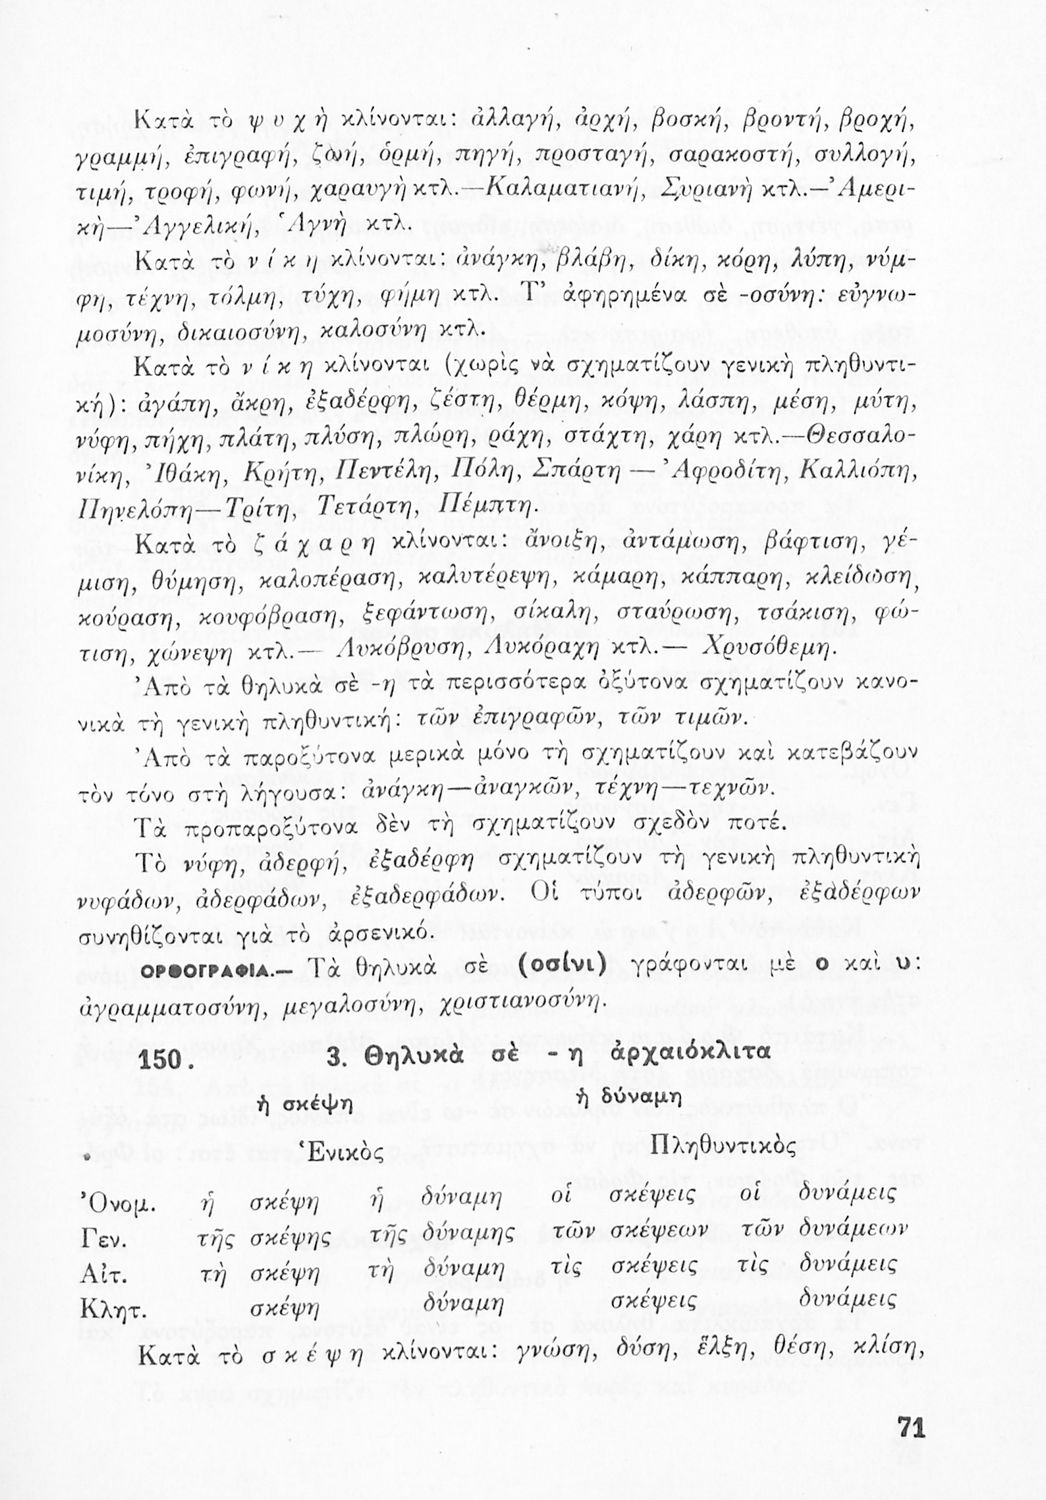 Κατὰ τὸ ψ υ χ ὴ κλίνονται: ἀλλαγή, ἀρχή, βοσκή, βροντή, βροχή,
γραμμή, ἐπιγραφή, ζωή, ὁρμή, πηγή, προσταγή, σαρακοστή, συλλογή,
τιμή, τροφή, φωνή, χαραυγὴ κτλ.—Καλαματιανή, Συριανὴ κτλ.—Ἀμερι-
κὴ—Ἀγγελική, Ἁγνὴ κτλ.
Κατὰ τὸ ν ί κ η κλίνονται: ἀνάγκη, βλάβη, δίκη, κόρη, λύπη, νύμ-
φη, τέχνη, τόλμη, τύχη, φήμη κτλ. Τ' ἀφηρημένα σὲ -οσύνη: εὐγνω-
μοσύνη, δικαιοσύνη, καλοσύνη κτλ.
Κατὰ τὸ ν ί κ η κλίνονται (χωρὶς νὰ σχηματίζουν γενικὴ πληθυντι-
κή): ἀγάπη, ἄκρη, ἐξαδέρφη, ζέστη, θέρμη, κόψη, λάσπη, μέση, μύτη,
νύφη, πήχη, πλάτη, πλύση, πλώρη, ράχη, στάχτη, χάρη κτλ.—Θεσσαλο-
νίκη, Ἰθάκη, Κρήτη, Πεντέλη, Πόλη, Σπάρτη — Ἀφροδίτη, Καλλιόπη,
Πηνελόπη—Τρίτη, Τετάρτη, Πέμπτη.
Κατὰ τὸ ζ ά χ α ρ η κλίνονται: ἄνοιξη, ἀντάμωση, βάφτιση, γέ-
μιση, θύμηση, καλοπέραση, καλυτέρεψη, κάμαρη, κάππαρη, κλείδωση,
κούραση, κουφόβραση, ξεφάντωση, σίκαλη, σταύρωση, τσάκιση, φώ-
τιση, χώνεψη κτλ.— Λυκόβρυση, Λυκόραχη κτλ.— Χρυσόθεμη.
Ἀπὸ τὰ θηλυκὰ σὲ -η τὰ περισσότερα ὀξύτονα σχηματίζουν κανο-
νικὰ τὴ γενικὴ πληθυντική: τῶν ἐπιγραφῶν, τῶν τιμῶν.
Ἀπὸ τὰ παροξύτονα μερικὰ μόνο τὴ σχηματίζουν καὶ κατεβάζουν
τὸν τόνο στὴ λήγουσα: ἀνάγκη—ἀναγκῶν, τέχνη—τεχνῶν.
Τὰ προπαροξύτονα δὲν τὴ σχηματίζουν σχεδὸν ποτέ.
Τὸ νύφη, ἀδερφή, ἐξαδέρφη σχηματίζουν τὴ γενικὴ πληθυντικὴ
νυφάδων, ἀδερφάδων, ἐξαδερφάδων. Οἱ τύποι ἀδερφῶν, ἐξαδέρφων
συνηθίζονται γιὰ τὸ ἀρσενικό.
ΟΡΘΟΓΡΑΦΙΑ.— Τὰ θηλυκὰ σὲ (οσίνι) γράφονται μὲ ο καὶ υ:
ἀγραμματοσύνη, μεγαλοσύνη, χριστιανοσύνη.
150. 3. Θηλυκὰ σὲ - η ἀρχαιόκλιτα
ἡ σκέψη ἡ δύναμη
Ἑνικὸς Πληθυντικὸς
Ὀνομ. ἡ σκέψη ἡ δύναμη οἱ σκέψεις οἱ δυνάμεις
Γεν. τῆς σκέψης τῆς δύναμης τῶν σκέψεων τῶν δυνάμεων
Αἰτ. τὴ σκέψη τὴ δύναμη τὶς σκέψεις τὶς δυνάμεις
Κλητ. σκέψη δύναμη σκέψεις δυνάμεις
Κατὰ τὸ σ κ έ ψ η κλίνονται: γνώση, δύση, ἕλξη, θέση, κλίση,
71